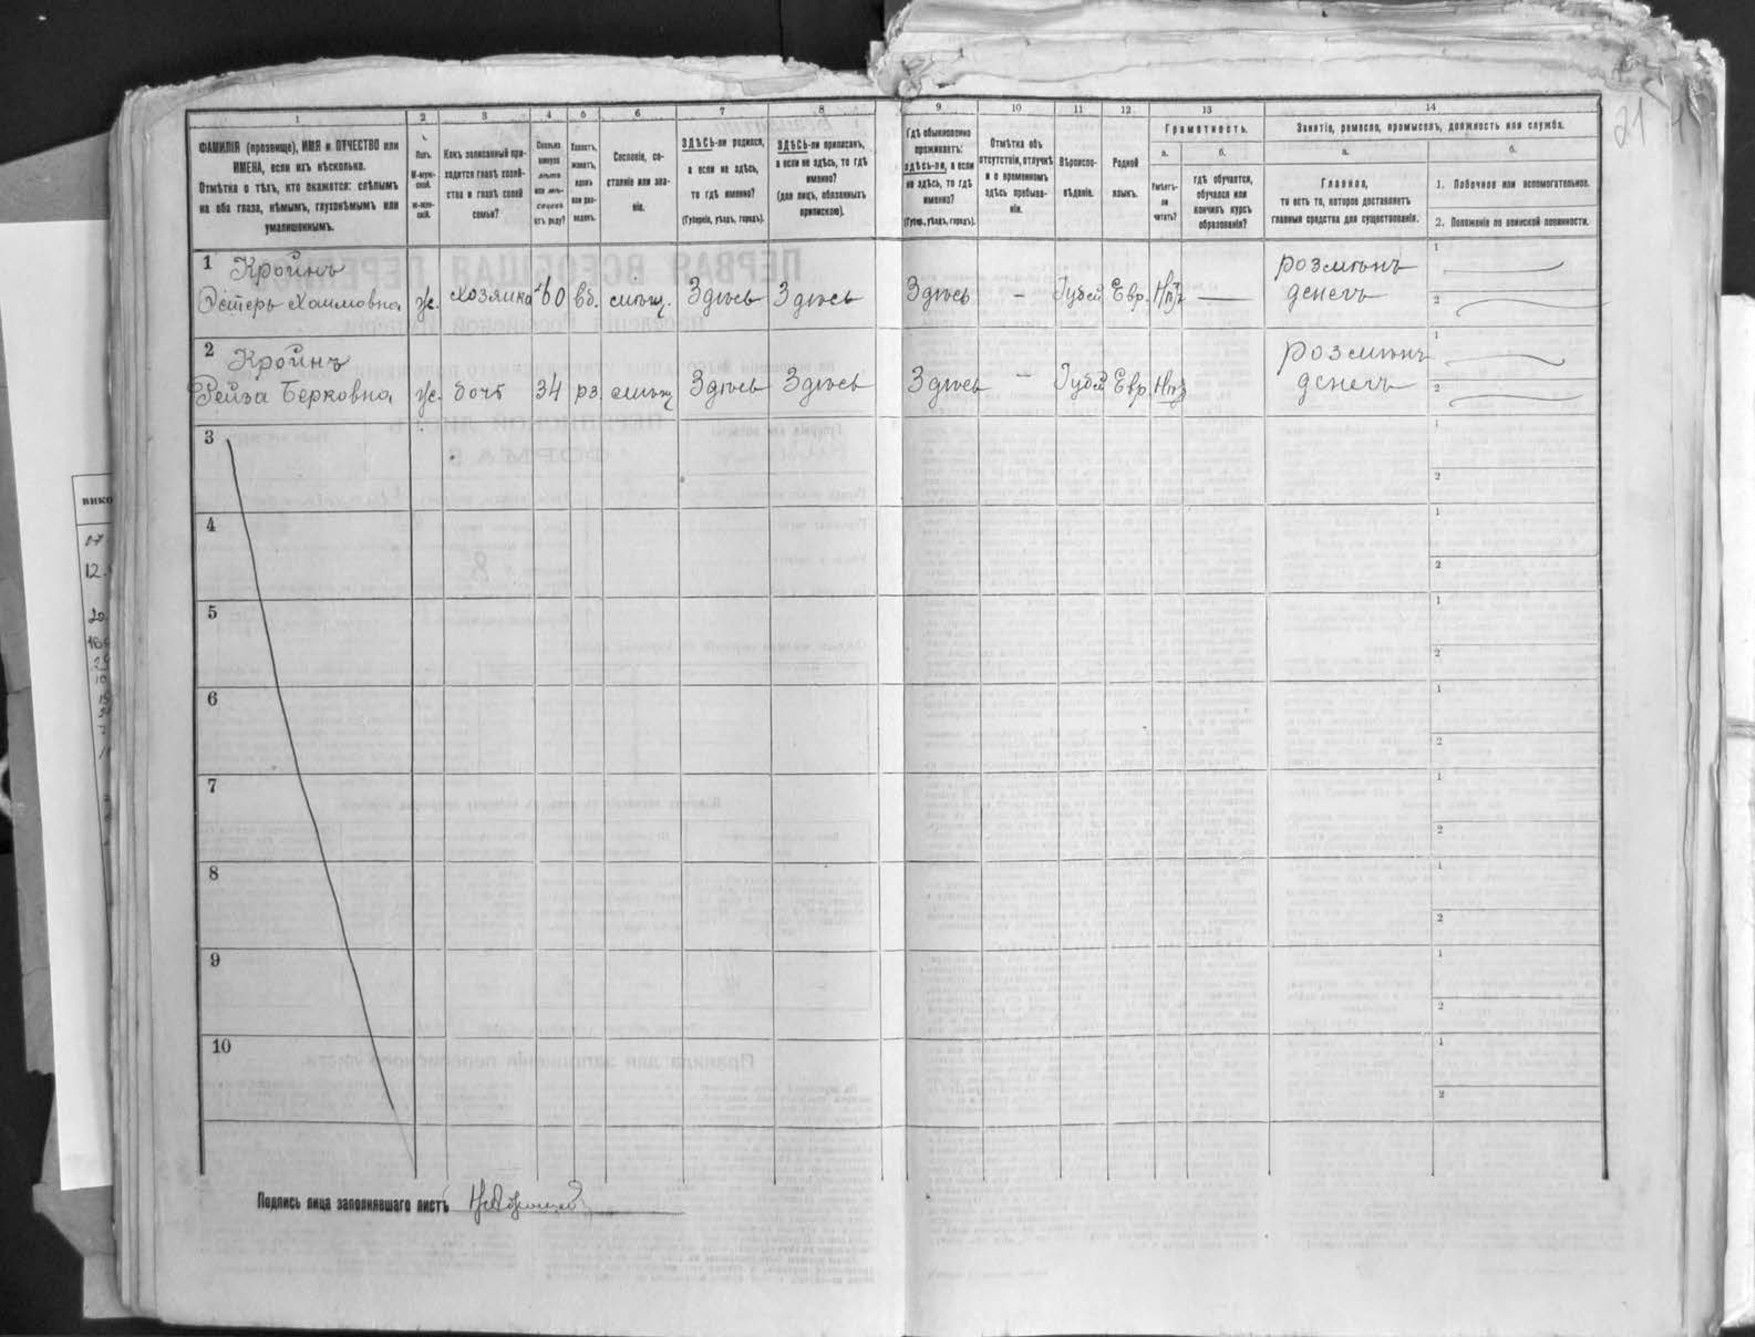 1 2 3 4 5 6 7 8 9 10 11 12 13 14
ФАМИЛІЯ (прозвище), ИМЯ и ОТЧЕСТВО или
ИМЕНА, если ихъ нѣсколько.
Отмѣтка о тѣхъ, кто окажется: слѣпымъ
на оба глаза, нѣмымъ, глухонѣмымъ или
умалишеннымъ.
Полъ.
М-муж-
ской.
Ж-жен-
скій.
Какъ записанный при-
ходится главѣ хозяй-
ства и главѣ своей
семьи?
Сколько
минуло
лѣтъ
или мѣ-
сяцевъ
отъ роду?
Холостъ,
женатъ,
вдовъ
или раз-
веденъ.
Сословіе, со-
стояніе или зва-
ніе.
ЗДѢСЬ-ли родился,
а если не здѣсь,
то гдѣ именно?
(Губернія, уѣздъ, городъ).
ЗДѢСЬ-ли приписанъ,
а если не здѣсь, то гдѣ
именно?
(для лицъ, обязанныхъ
припискою).
Гдѣ обыкновенно
проживаетъ:
здѣсь-ли, а если
не здѣсь, то гдѣ
именно?
(Губер., уѣздъ, городъ).
Отмѣтка объ
отсутствіи, отлучкѣ
и о временномъ
здѣсь пребыва-
ніи.
Вѣроиспо-
вѣданіе.
Родной
языкъ.
Грамотность.
а.
Умѣетъ-
ли
читать?
б.
гдѣ обучается,
обучался или
кончилъ курсъ
образованія?
Занятіе, ремесло, промыселъ, должность или служба.
а.
Главное,
то есть то, которое доставляетъ
главныя средства для существованія.
б.
1. Побочное или вспомогательное.
2. Положеніе по воинской повинности.
21
1 Кройнъ розмѣнъ 1
Эстеръ Хаимовна ж. хозяйка 60 вд. мѣщ. Здѣсь Здѣсь Здѣсь — Іудей Евр. Нѣтъ — денегъ 2
2 Кройнъ розмѣнъ 1
Рейза Берковна ж. дочь 34 рз. мѣщ. Здѣсь Здѣсь Здѣсь — Іудей Евр. Нѣтъ денегъ 2
3 1
2
4 1
2
5 1
2
6 1
2
7 1
2
8 1
2
9 1
2
10 1
2
Подпись лица заполнявшаго листъ